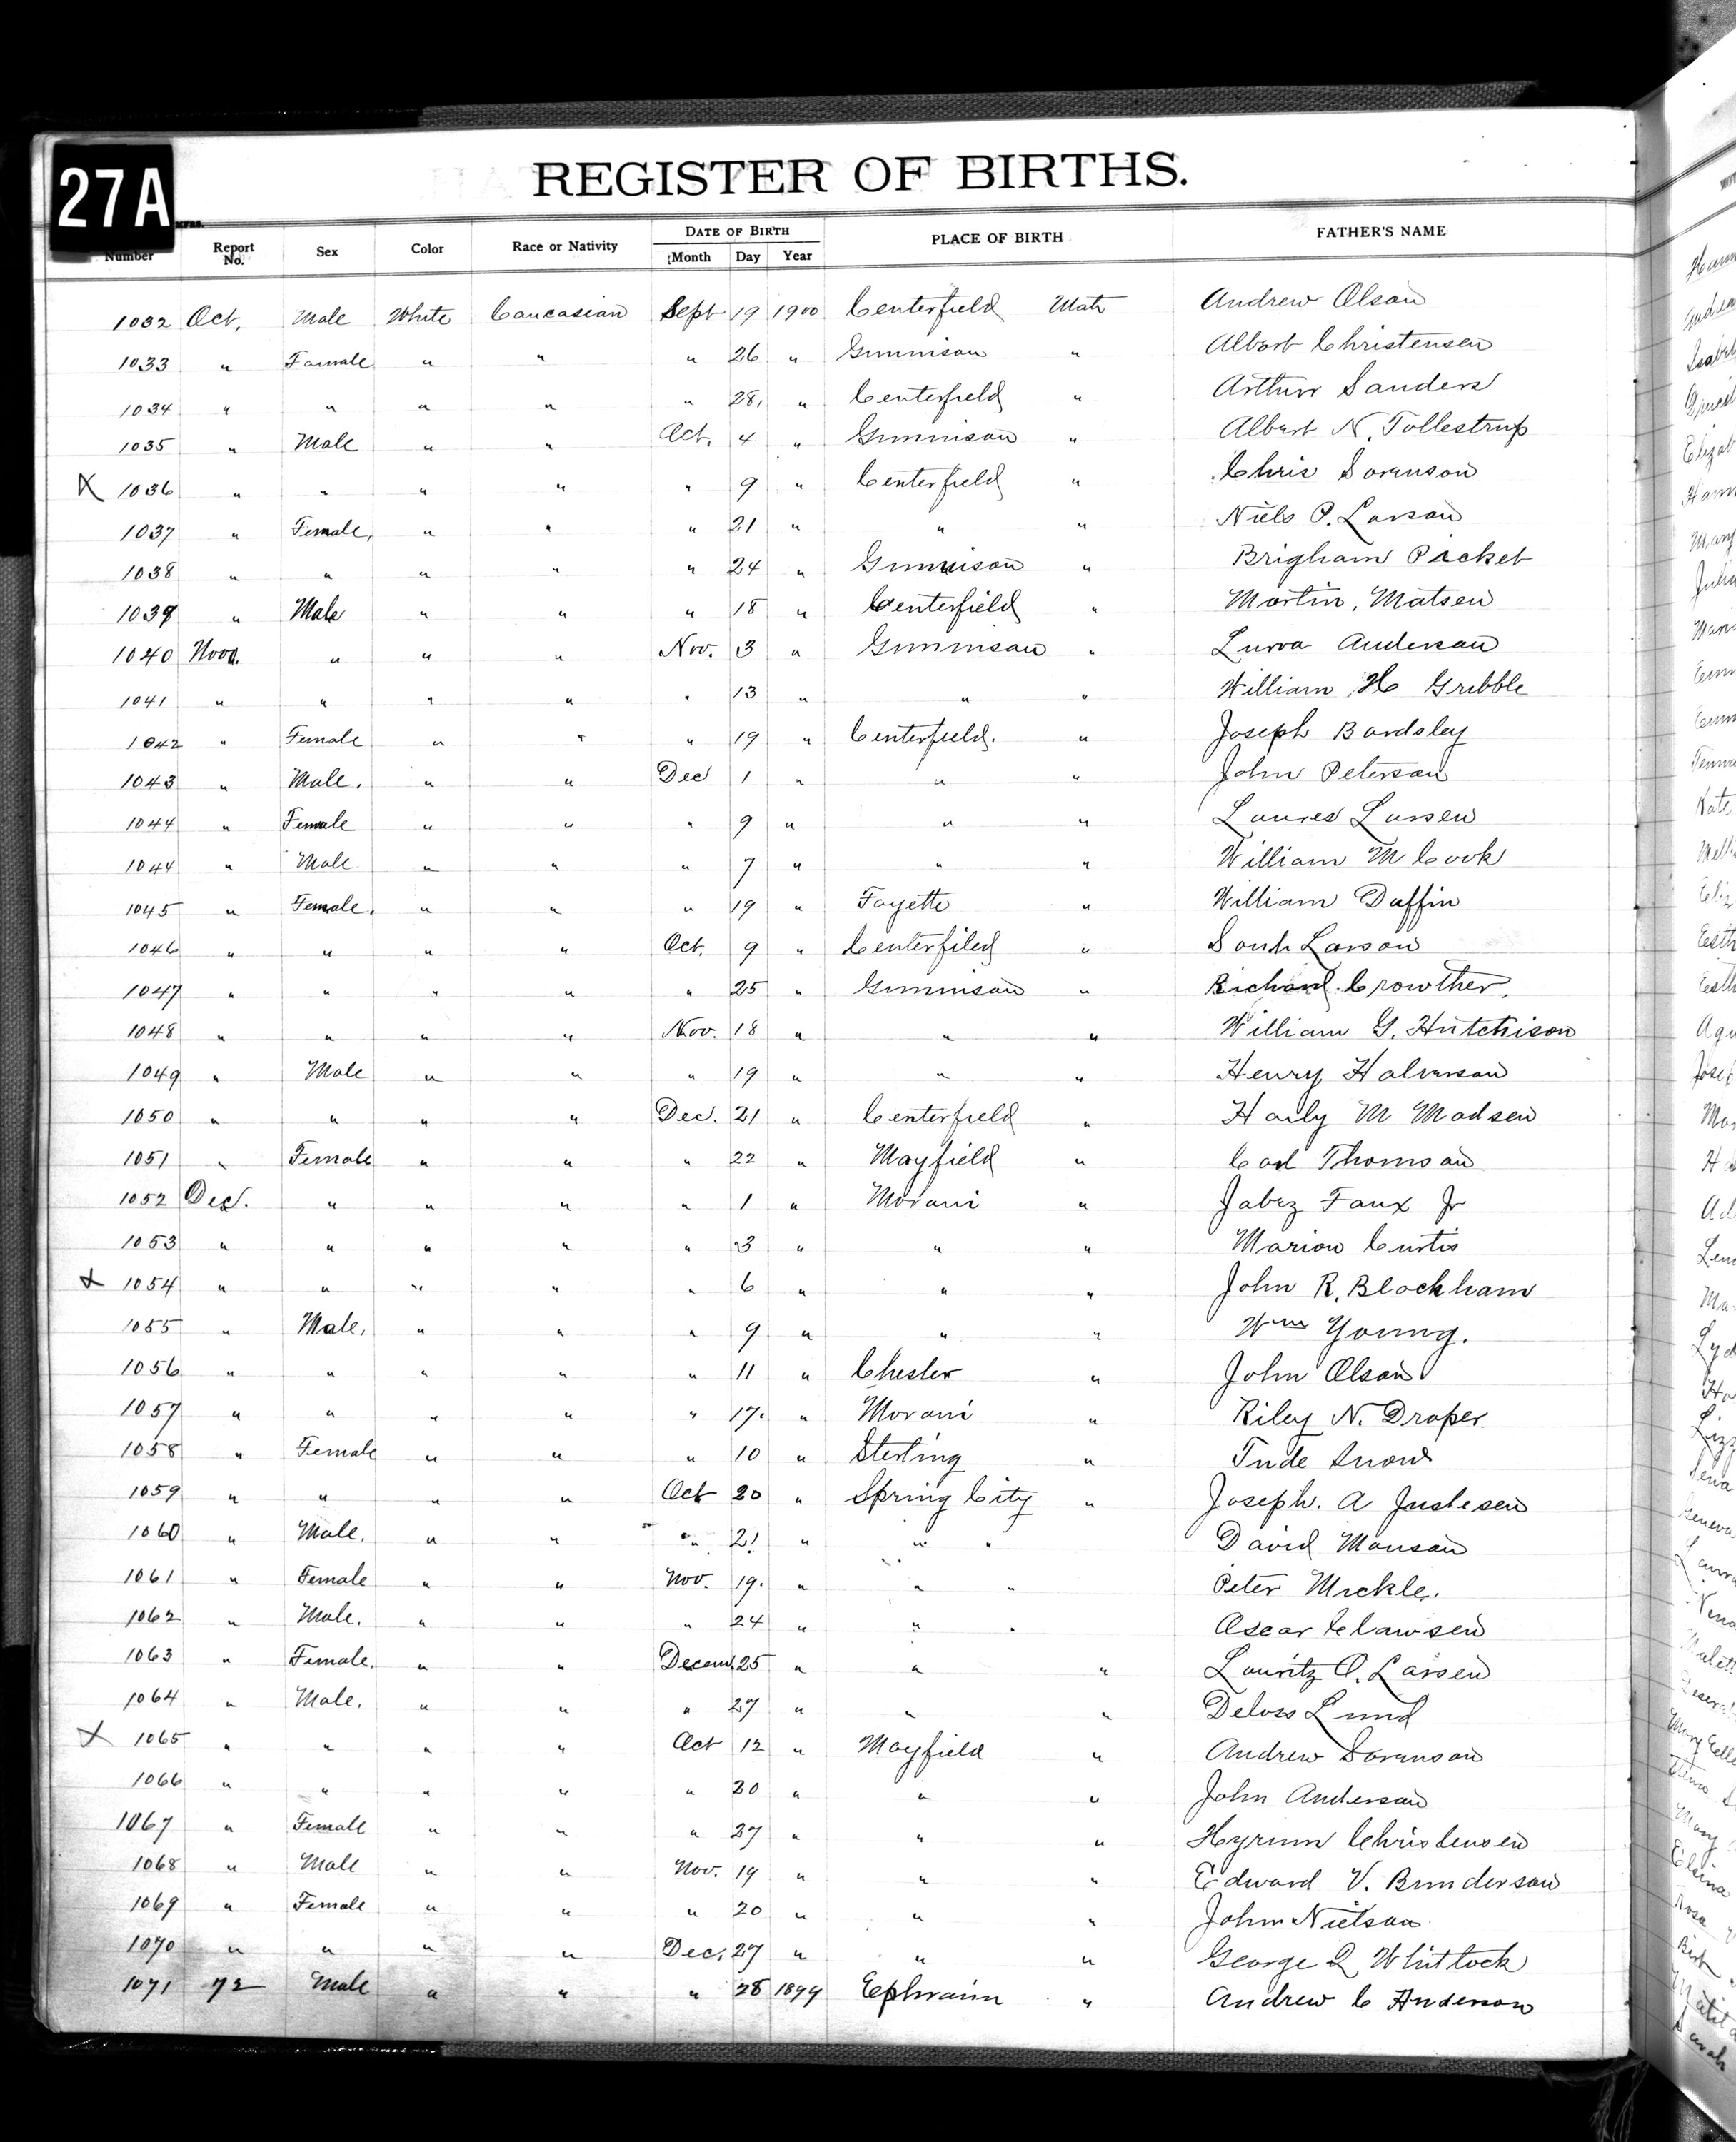 27A
REGISTER OF BIRTHS.
Number Report No. Sex Color Race or Nativity DATE OF BIRTH Month Day Year PLACE OF BIRTH FATHER'S NAME
1032 Oct. Male White Caucasian Sept 19 1900 Centerfield Utah Andrew Olson
1033 " Female " " " 26 " Gunnison " Albert Christensen
1034 " " " " " 28, " Centerfield " Arthur Sanders
1035 " Male " " Oct. 4 " Gunnison " Albert N. Tollestrup
X 1036 " " " " " 9 " Centerfield " Chris Sorenson
1037 " Female, " " " 21 " " " Niels P. Larson
1038 " " " " " 24 " Gunnison " Brigham Picket
1039 " Male " " " 18 " Centerfield " Martin, Matsen
1040 " " " Nov. 3 " Gunnison " Anderson
1041 " " " " " 13 " " " William H Gribble
1042 " Female " " " 19 " Centerfield. " Joseph Bardsley
1043 " Male. " " Dec 1 " " " John Peterson
1044 " Female " " " 9 " " " Larsen
1044 " Male " " " 7 " " " William M Cook
1045 " Female. " " " 19 " Fayette " William Duffin
1046 " " " " Oct. 9 " Centerfiled " Larson
1047 " " " " " 25 " Gunnison " Richard Crowther,
1048 " " " " Nov. 18 " " " William G. Hutchison
1049 " Male " " " 19 " " " Henry Halverson
1050 " " " " Dec. 21 " Centerfield " M Madsen
1051 " Female " " " 22 " Mayfield " Thomson
1052 Dec. " " " " 1 " Moroni " Jabez Faux Jr
1053 " " " " " 3 " " " Marion Curtis
X 1054 " " " " " 6 " " " John R. Blackham
1055 " Male, " " " 9 " " " Wm Young.
1056 " " " " " 11 " Chester " John Olson
1057 " " " " " 17. " Moroni " Riley N. Draper
1058 " Female " " " 10 " Sterling " Snow
1059 " " " " Oct 20 " Spring City " Joseph. A Justesen
1060 " Male. " " " 21 " " " David Monson
1061 " Female " " Nov. 19. " " " Peter Mickle.
1062 " Male. " " " 24 " " " Clawsen
1063 " Female. " " Decem. 25 " " " Lauritz O. Larsen
1064 " Male. " " " 27 " " " Deloss Lund
X 1065 " " " " Oct 12 " Mayfield " Andrew Sorenson
1066 " " " " " 20 " " " John Anderson
1067 " Female " " " 27 " " " Hyrum Christensen
1068 " Male " " Nov. 19 " " " Edward V. Bunderson
1069 " Female " " " 20 " " " John Nielson
1070 " " " " Dec. 27 " " " George Q Whitlock
1071 72 Male " " " 28 1899 Ephraim " Andrew C Anderson